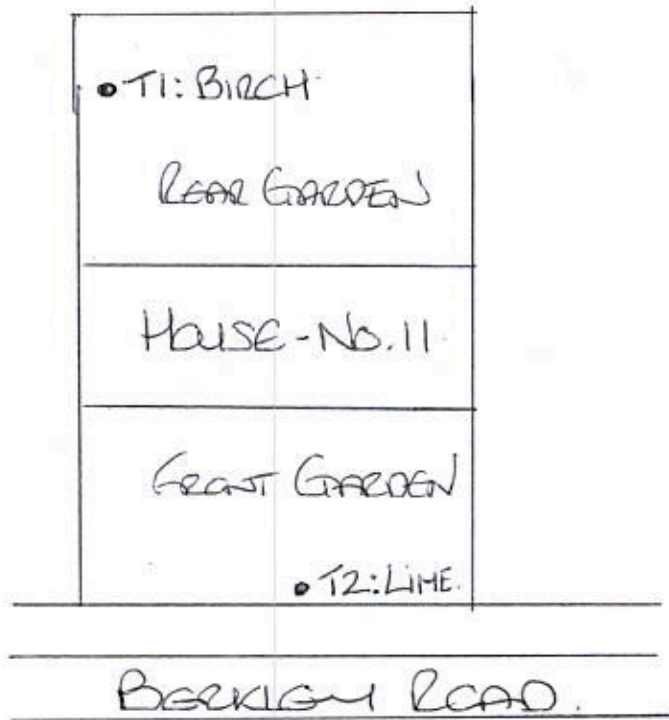 T1: BIRCH
REAR GARDEN
HOUSE - No. 11
FRONT GARDEN
T2: LIME.
BERKLEY ROAD.